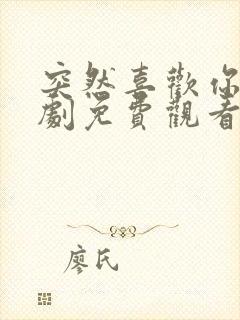 突然喜歡你
劇免費觀看
廖氏